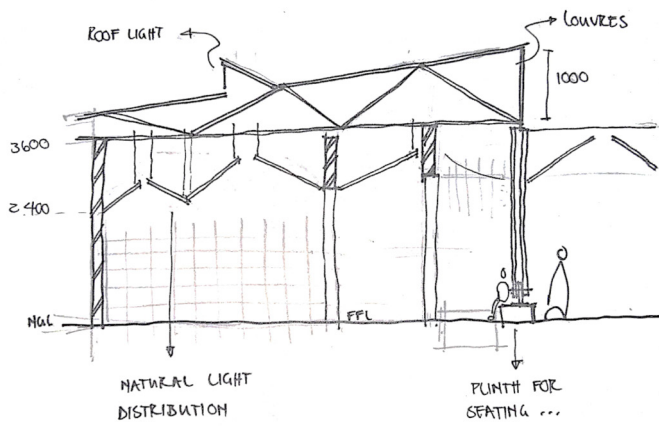 ROOF LIGHT
LOUVRES
1000
3600
2400
NGL
FFL
NATURAL LIGHT
DISTRIBUTION
PLINTH FOR
SEATING ...